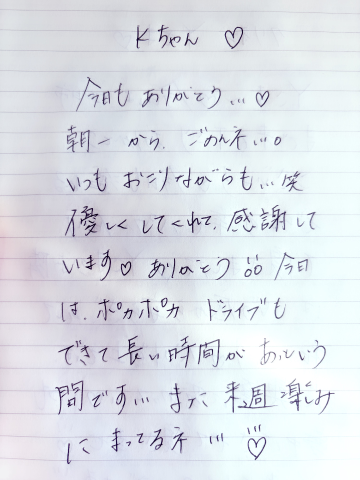 Kちゃん ♡
今日も ありがとう...♡
朝一から、ごめんネ...。
いつも おこりながらも...笑
優しくしてくれて、感謝して
います♡ ありがとう 今日
は、ポカポカ ドライブも
できて 長い時間が あっという
間です... また 来週 楽しみ
に まってるネ ... ♡